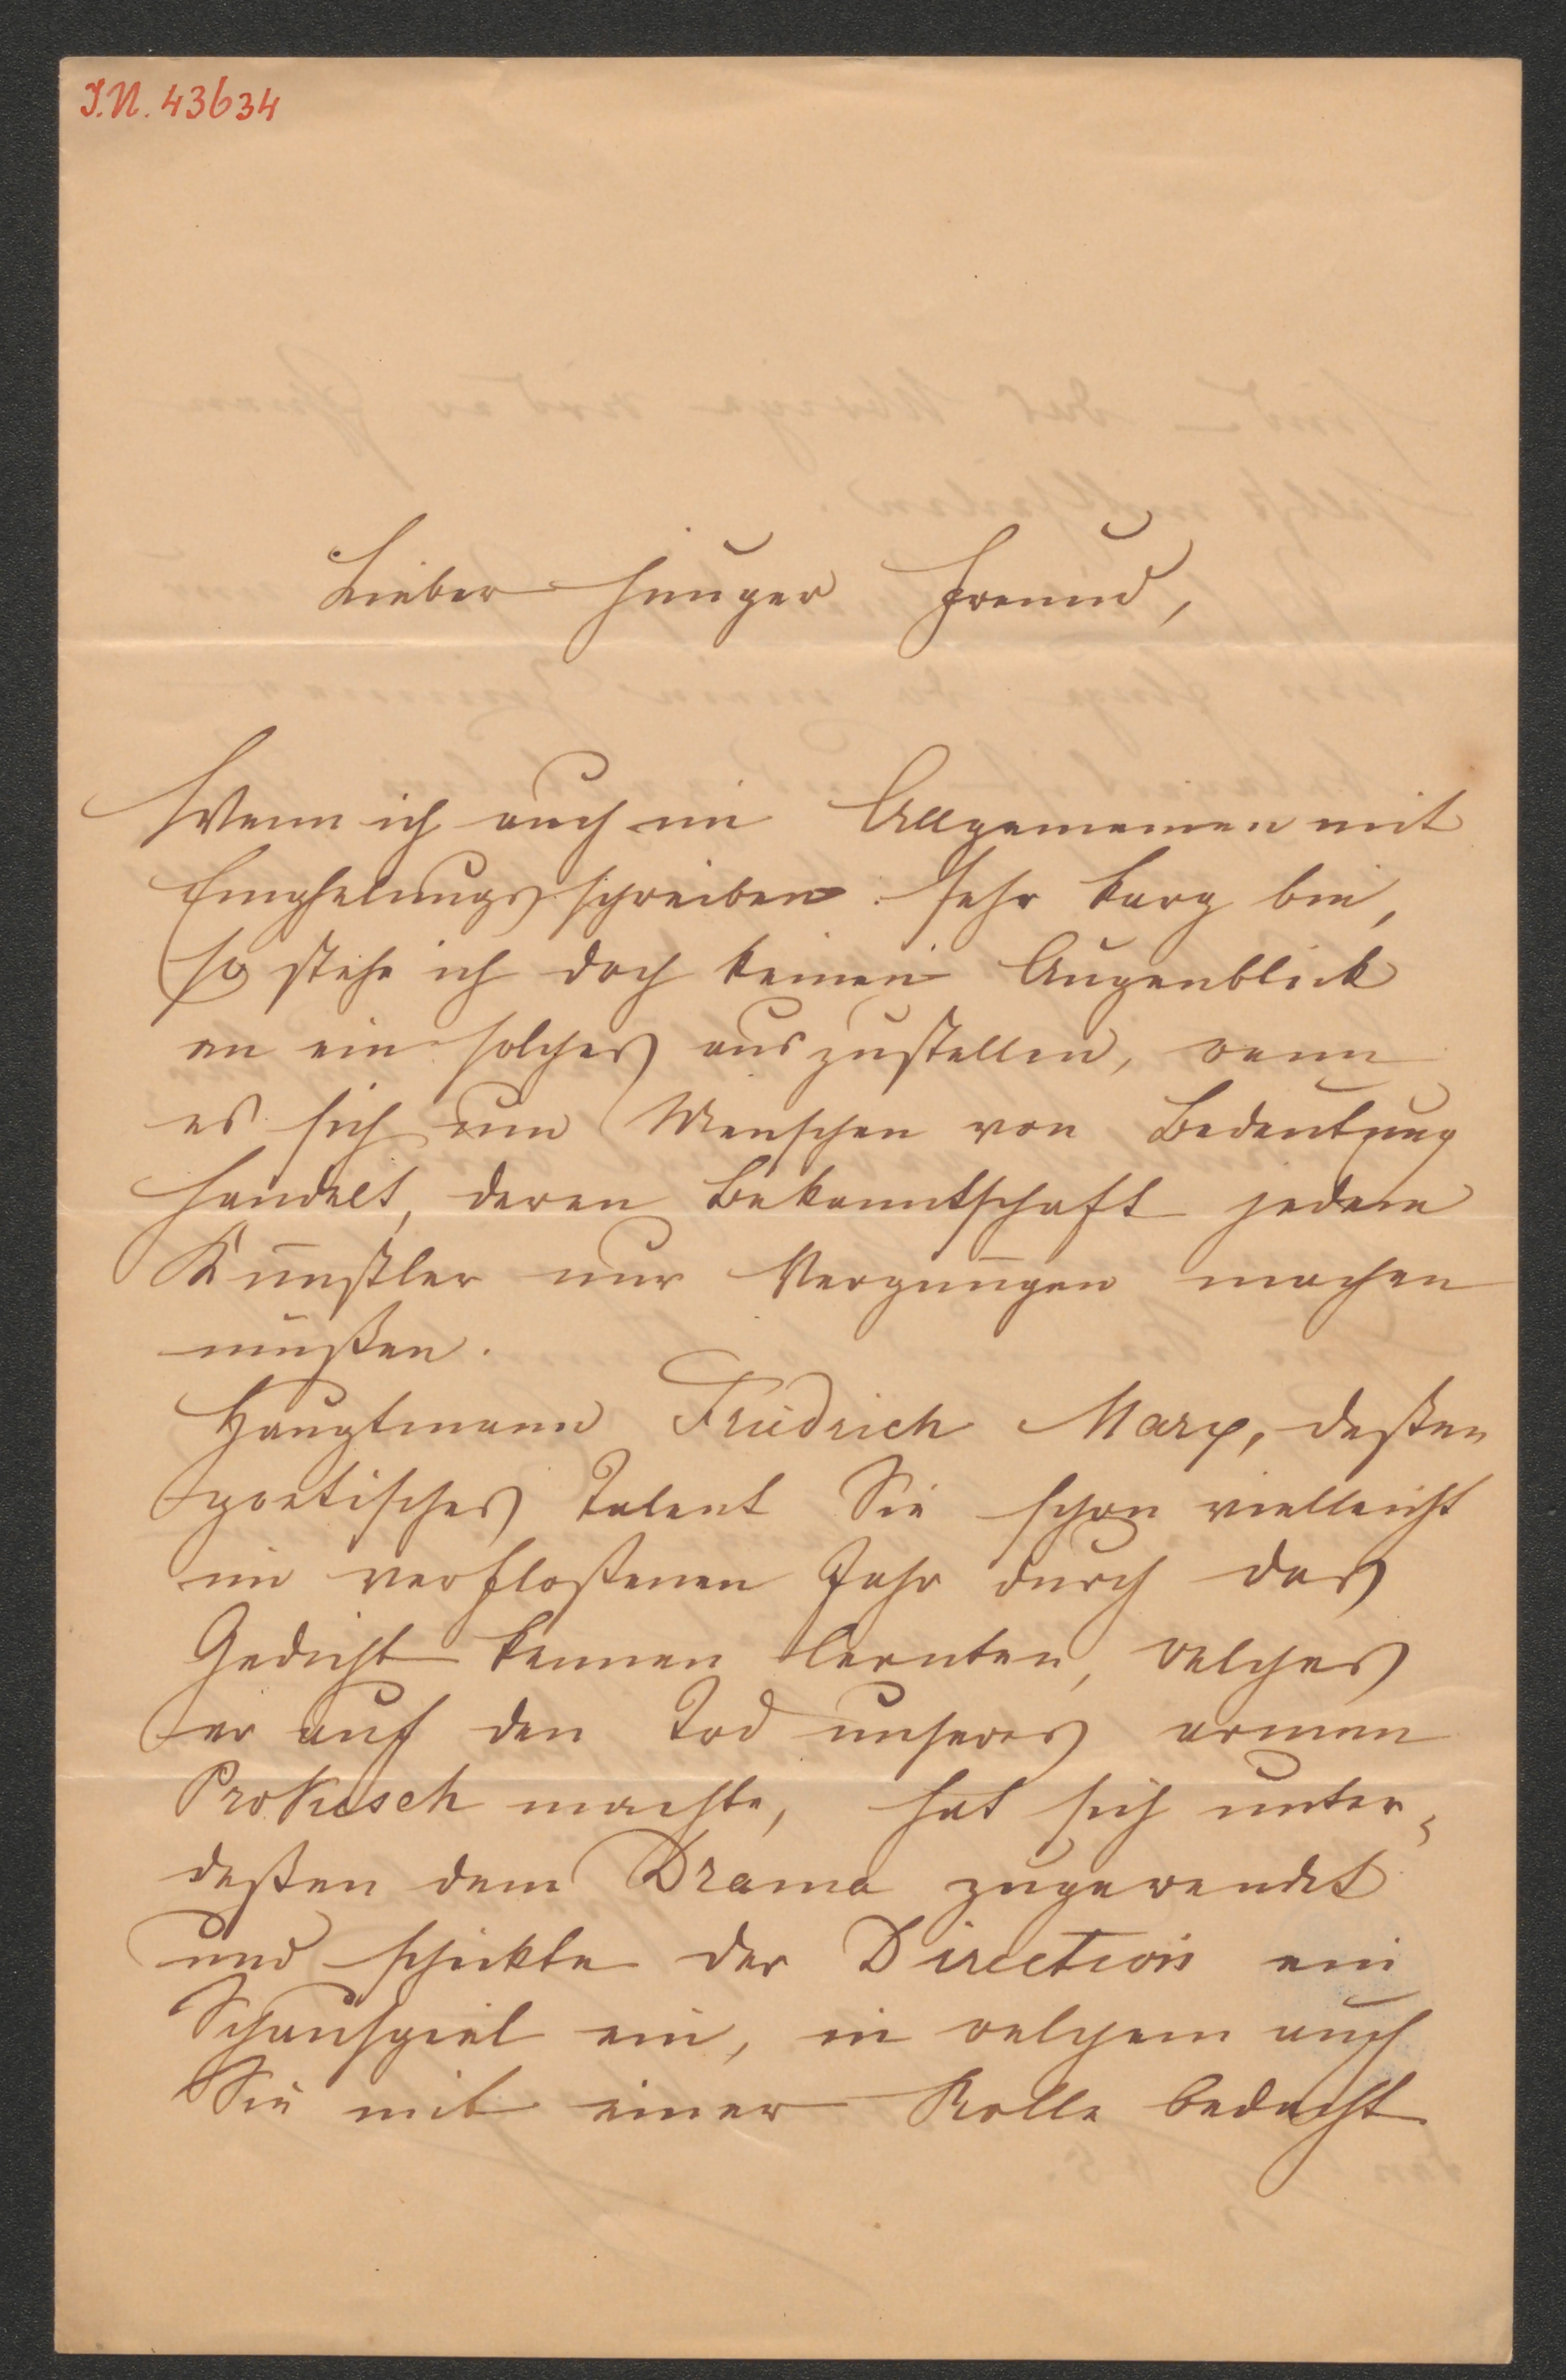 I.N. 43634
Lieber junger Freund,
Wenn ich auch im Allgemeinen mit
Empfelungsschreiben sehr karg bin,
so stehe ich doch keinen Augenblick
an ein solches auszustellen, wenn
es sich um Menschen von Bedeutung
handelt, deren Bekanntschaft jedem
Künstler nur Vergnügen machen
müßen.
Hauptmann Friedrich Marx, deßen
poetisches Talent Sie schon vielleicht
im verfloßenen Jahr durch das
Gedicht kennen lernten, welches
er auf den Tod unseres armen
Prokesch machte, hat sich unter-
deßen dem Drama zugewendet
und schickte der Direction ein
Schauspiel ein, in welchem auch
Sie mit einer Rolle bedacht